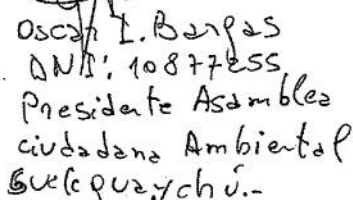 Oscar I. Bargas
DNI: 10877255
Presidente Asamblea
ciudadana Ambiental
Gueleguaychú.-